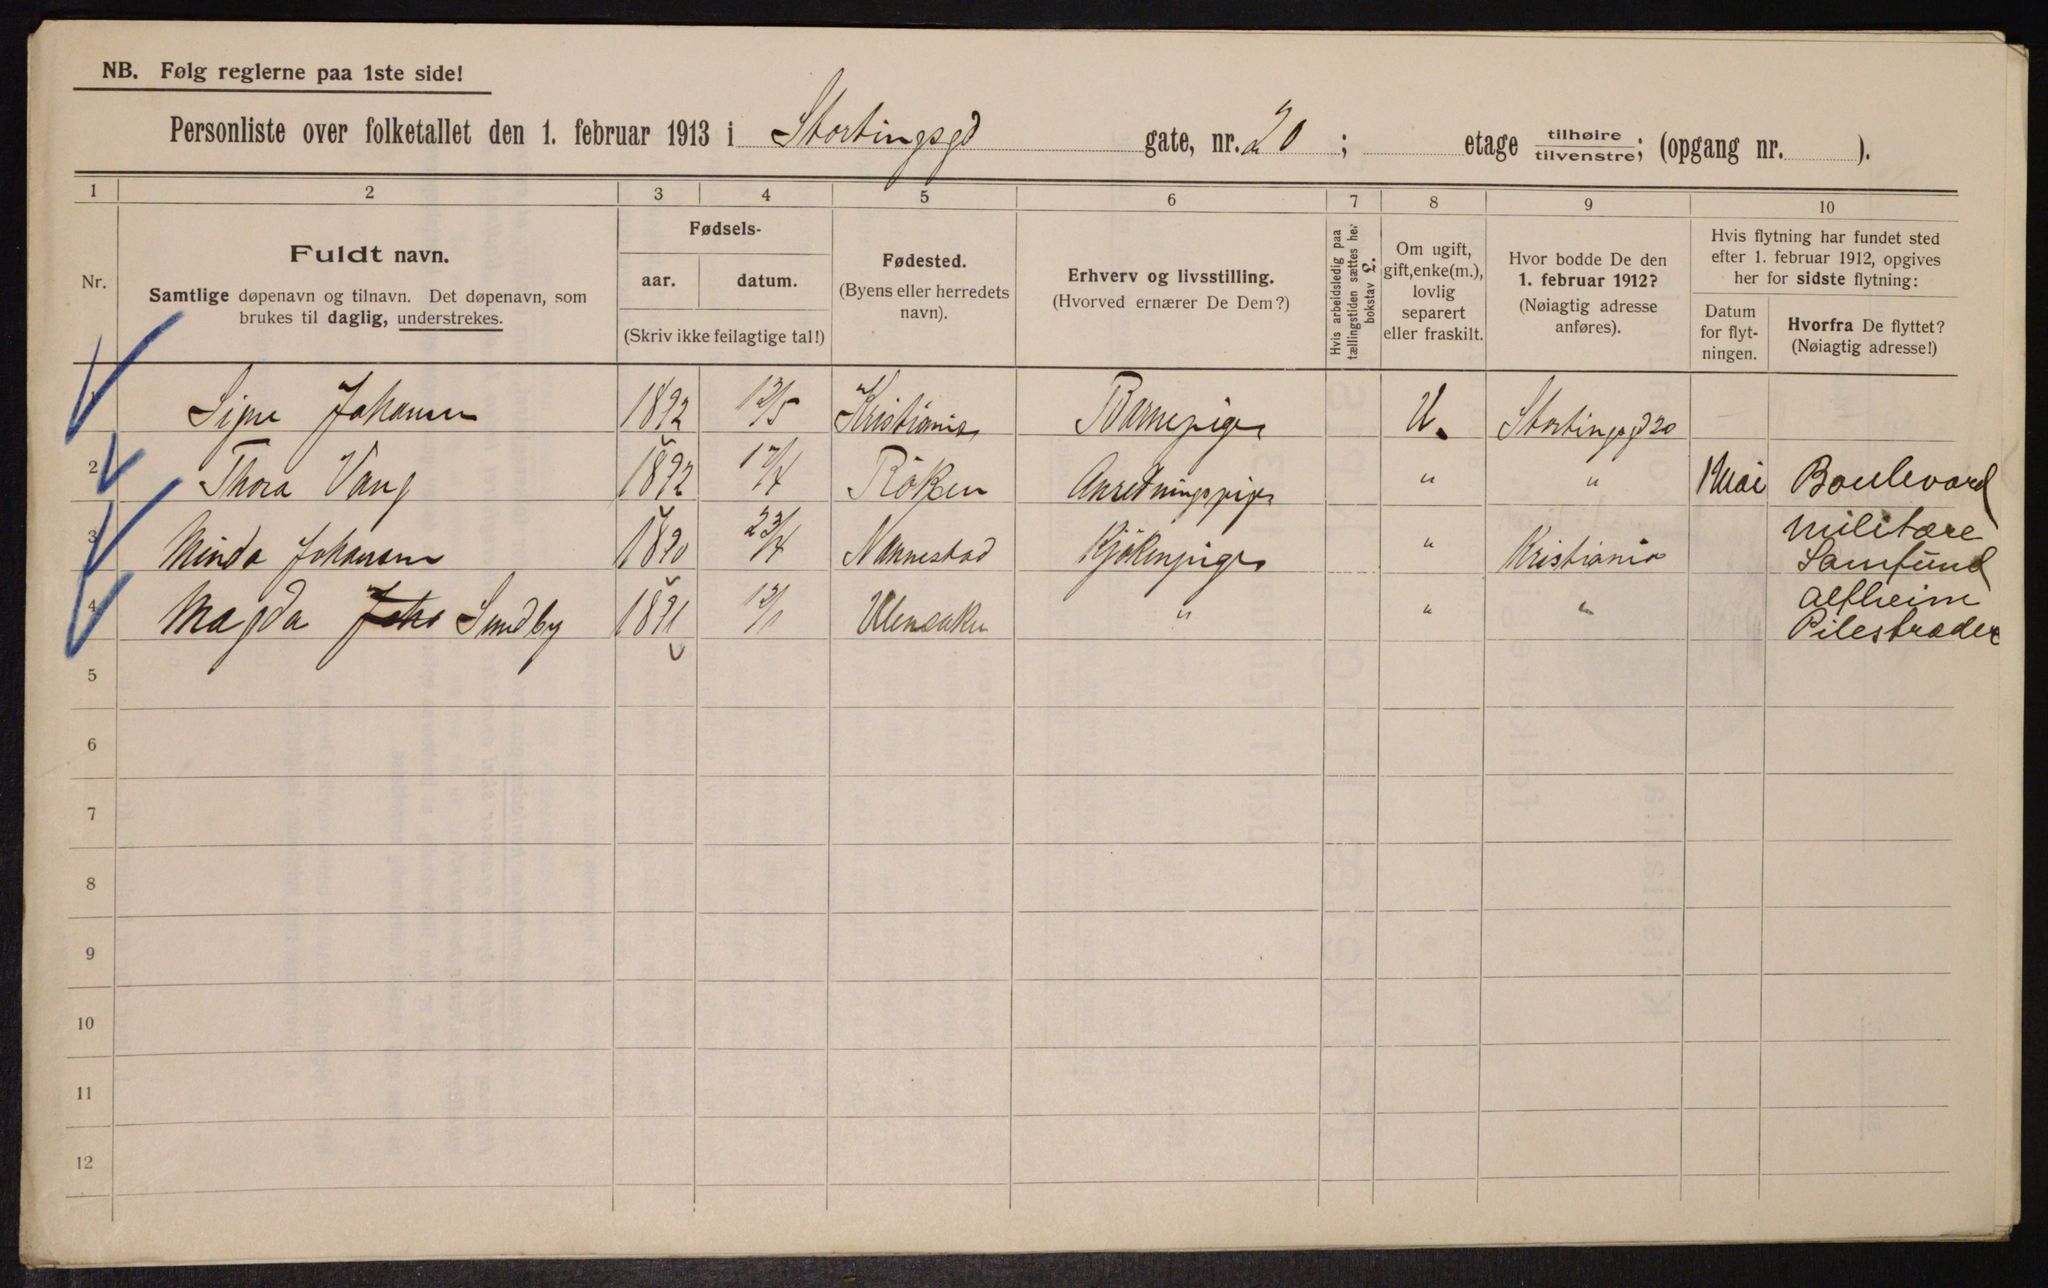 NB. Følg reglerne paa 1ste side!
Personliste over folketallet den 1. februar 1913 i Stortingsgd gate, nr. 20 ; etage tilhøire/tilvenstre; (opgang nr. ).
1 2 3 4 5 6 7 8 9 10
Nr.
Fuldt navn.
Samtlige døpenavn og tilnavn. Det døpenavn, som
brukes til daglig, understrekes.
Fødsels-
aar. datum.
(Skriv ikke feilagtige tal!)
Fødested.
(Byens eller herredets
navn).
Erhverv og livsstilling.
(Hvorved ernærer De Dem?)
Hvis arbeidsledig paa
tællingstiden sættes her
bokstav £.
Om ugift,
gift, enke(m.),
lovlig
separert
eller fraskilt.
Hvor bodde De den
1. februar 1912?
(Nøiagtig adresse
anføres).
Hvis flytning har fundet sted
efter 1. februar 1912, opgives
her for sidste flytning:
Datum
for flyt-
ningen.
Hvorfra De flyttet?
(Nøiagtig adresse!)
1 Signe Johansen 1892 12/5 Kristiania Barnepige U. Stortingsgd 20
2 Thora Vang 1892 17/4 Röken Anretningspige " " 1 Mai Boulevard
3 Minda Johansen 1890 23/4 Nannestad Kjökenpige " Kristiania Militære
Samfund
4 Magda Joha Sundby 1891 12/1 Ulensaker " " " Alfheim
Pilestrædet
5
6
7
8
9
10
11
12